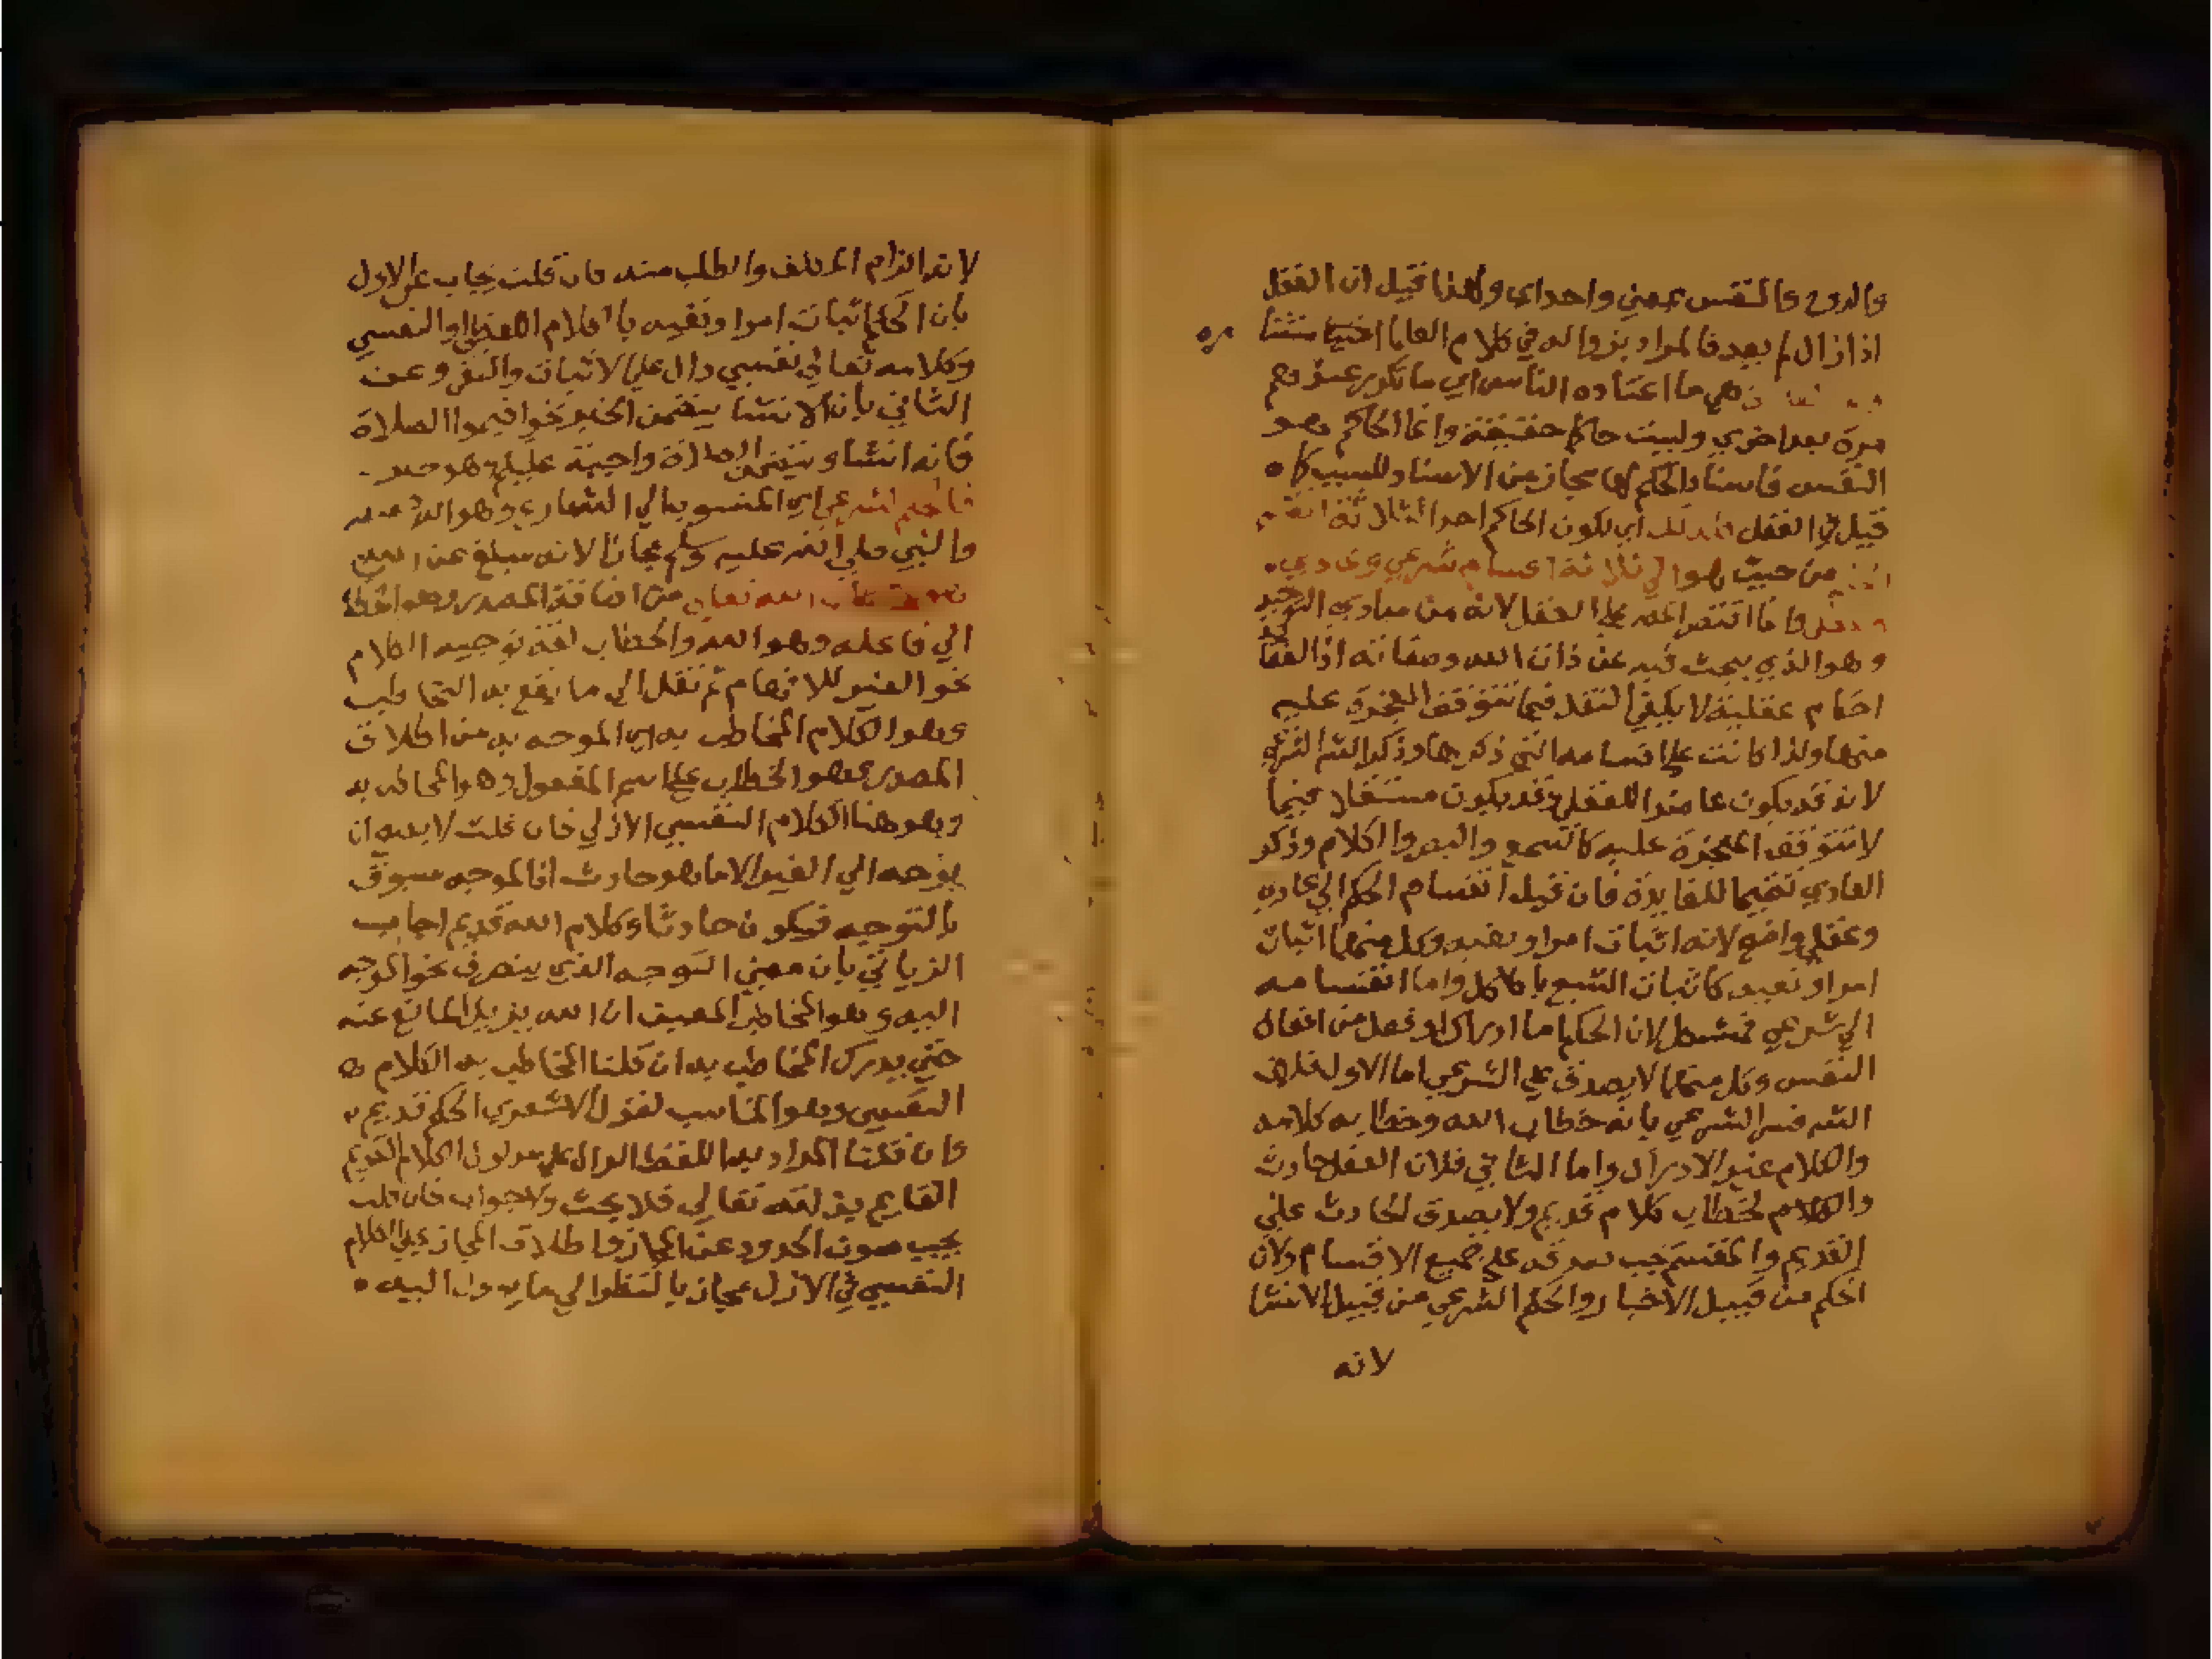 والروح والنفس بمعني واحداي ولهذا قيل ان العقل
اذا زال لم يعد فالمراد بزواله في كلام العلما
هي ما اعتاده الناس اي ما تكرر عندهم
مرة بعد اخري وليست حاكم حقيقة وانما الحاكم هو
النفس فاسناد الحكم لها مجاز من الاسناد للسبب كما
قيل في العقل فلذلك اي لكون الحاكم احد الثلاثة انقسم
من حيث هو الي ثلاثة اقسام شرعي وعادي
وعقلي وانما اقتصر المصر علي العقل لانه من مبادي التوحيد
وهو الذي يبحث فيه عن ذات الله وصفاته اذ العقا
احكام عقلية لا يكفي النقل فيما تتوقف المعجزة عليه
منها ولذا كانت علي اقسامه التي ذكرها وذكر الشر الشرعي
لانه قد يكون عاضدا للعقل وقد يكون مستقلا فيما
لا تتوقف المعجزة عليه كالسمع والبصر والكلام وذكر
العادي تتميما للفايدة فان قيل انقسام الحكم الي عادي
وعقلي واضح لانه اثبات امر او نفيه وكل منهما اثبات
امر او نفيه كاثبات الشبع بالاكل واما انقسامه
الي شرعي فمشكل لان الحكم اما ادراك او فعل من افعال
النفس وكل منهما لا يصدق علي الشرعي اما الاول فلان
الشر فسر الشرعي بانه خطاب الله وخطابه كلامه
والكلام غير الادراك واما الثاني فلان الفعل حادث
والكلام لخطاب كلام قديم ولا يصدق الحادث علي
القديم والمقسم يجب صدقه علي جميع الاقسام ولان
الحكم من قبيل الاخبار والحكم الشرعي من قبيل الانشا
لانه
لانه الزام المكلف والطلب منه فان قلت يجاب عن الاول
بان الحكم اثبات امر او نفيه بالكلام اللفظي او النفسي
وكلامه تعالي نفسي دال علي الاثبات والنفي وعن
الثاني بان الانشا يتضمن الخبر نحو اقيموا الصلاة
فانه انشا ويتضمن الصلاة واجبة عليكم وهو خبر
فالحكم الشرعي اي المنسوب الي الشارع وهو الله
والنبي صلي الله عليه وسلم مجازا لانه مبلغ عن الله
هو خطاب الله تعالي من اضافة المصدر وهو الخطاب
الي فاعله وهو الله والخطاب لغة توجيه الكلام
نحو الغير للافهام ثم نقل الي ما يقع به التخاطب
وهو الكلام المخاطب به اي الموجه به من اطلاق
المصدر وهو الخطاب علي اسم المفعول وهو المخاطب به
وهو هنا الكلام النفسي الازلي فان قلت لا يصح ان
يوجه الي الغير الا ما هو حادث اذ الموجه مسبوق
بالتوجيه فيكون حادثا وكلام الله قديم اجاب
الزياتي بان معني التوجه الذي ينصرف نحو الموجه
اليه وهو المخاطب المعين ان الله يزيل المانع عنه
حتي يدرك المخاطب به ان قلنا المخاطب به الكلام
النفسي وهو المناسب لقول الاشعري الحكم قديم
وان قلنا المراد به اللفظ الدال علي مدلول الكلام القديم
القايم بذاته تعالي فلا بحث ولا جواب فان قلت
يجب صون الحدود عن المجاز واطلاق المجاز علي الكلام
النفسي في الازل مجاز بالنظر الي ما يؤول اليه